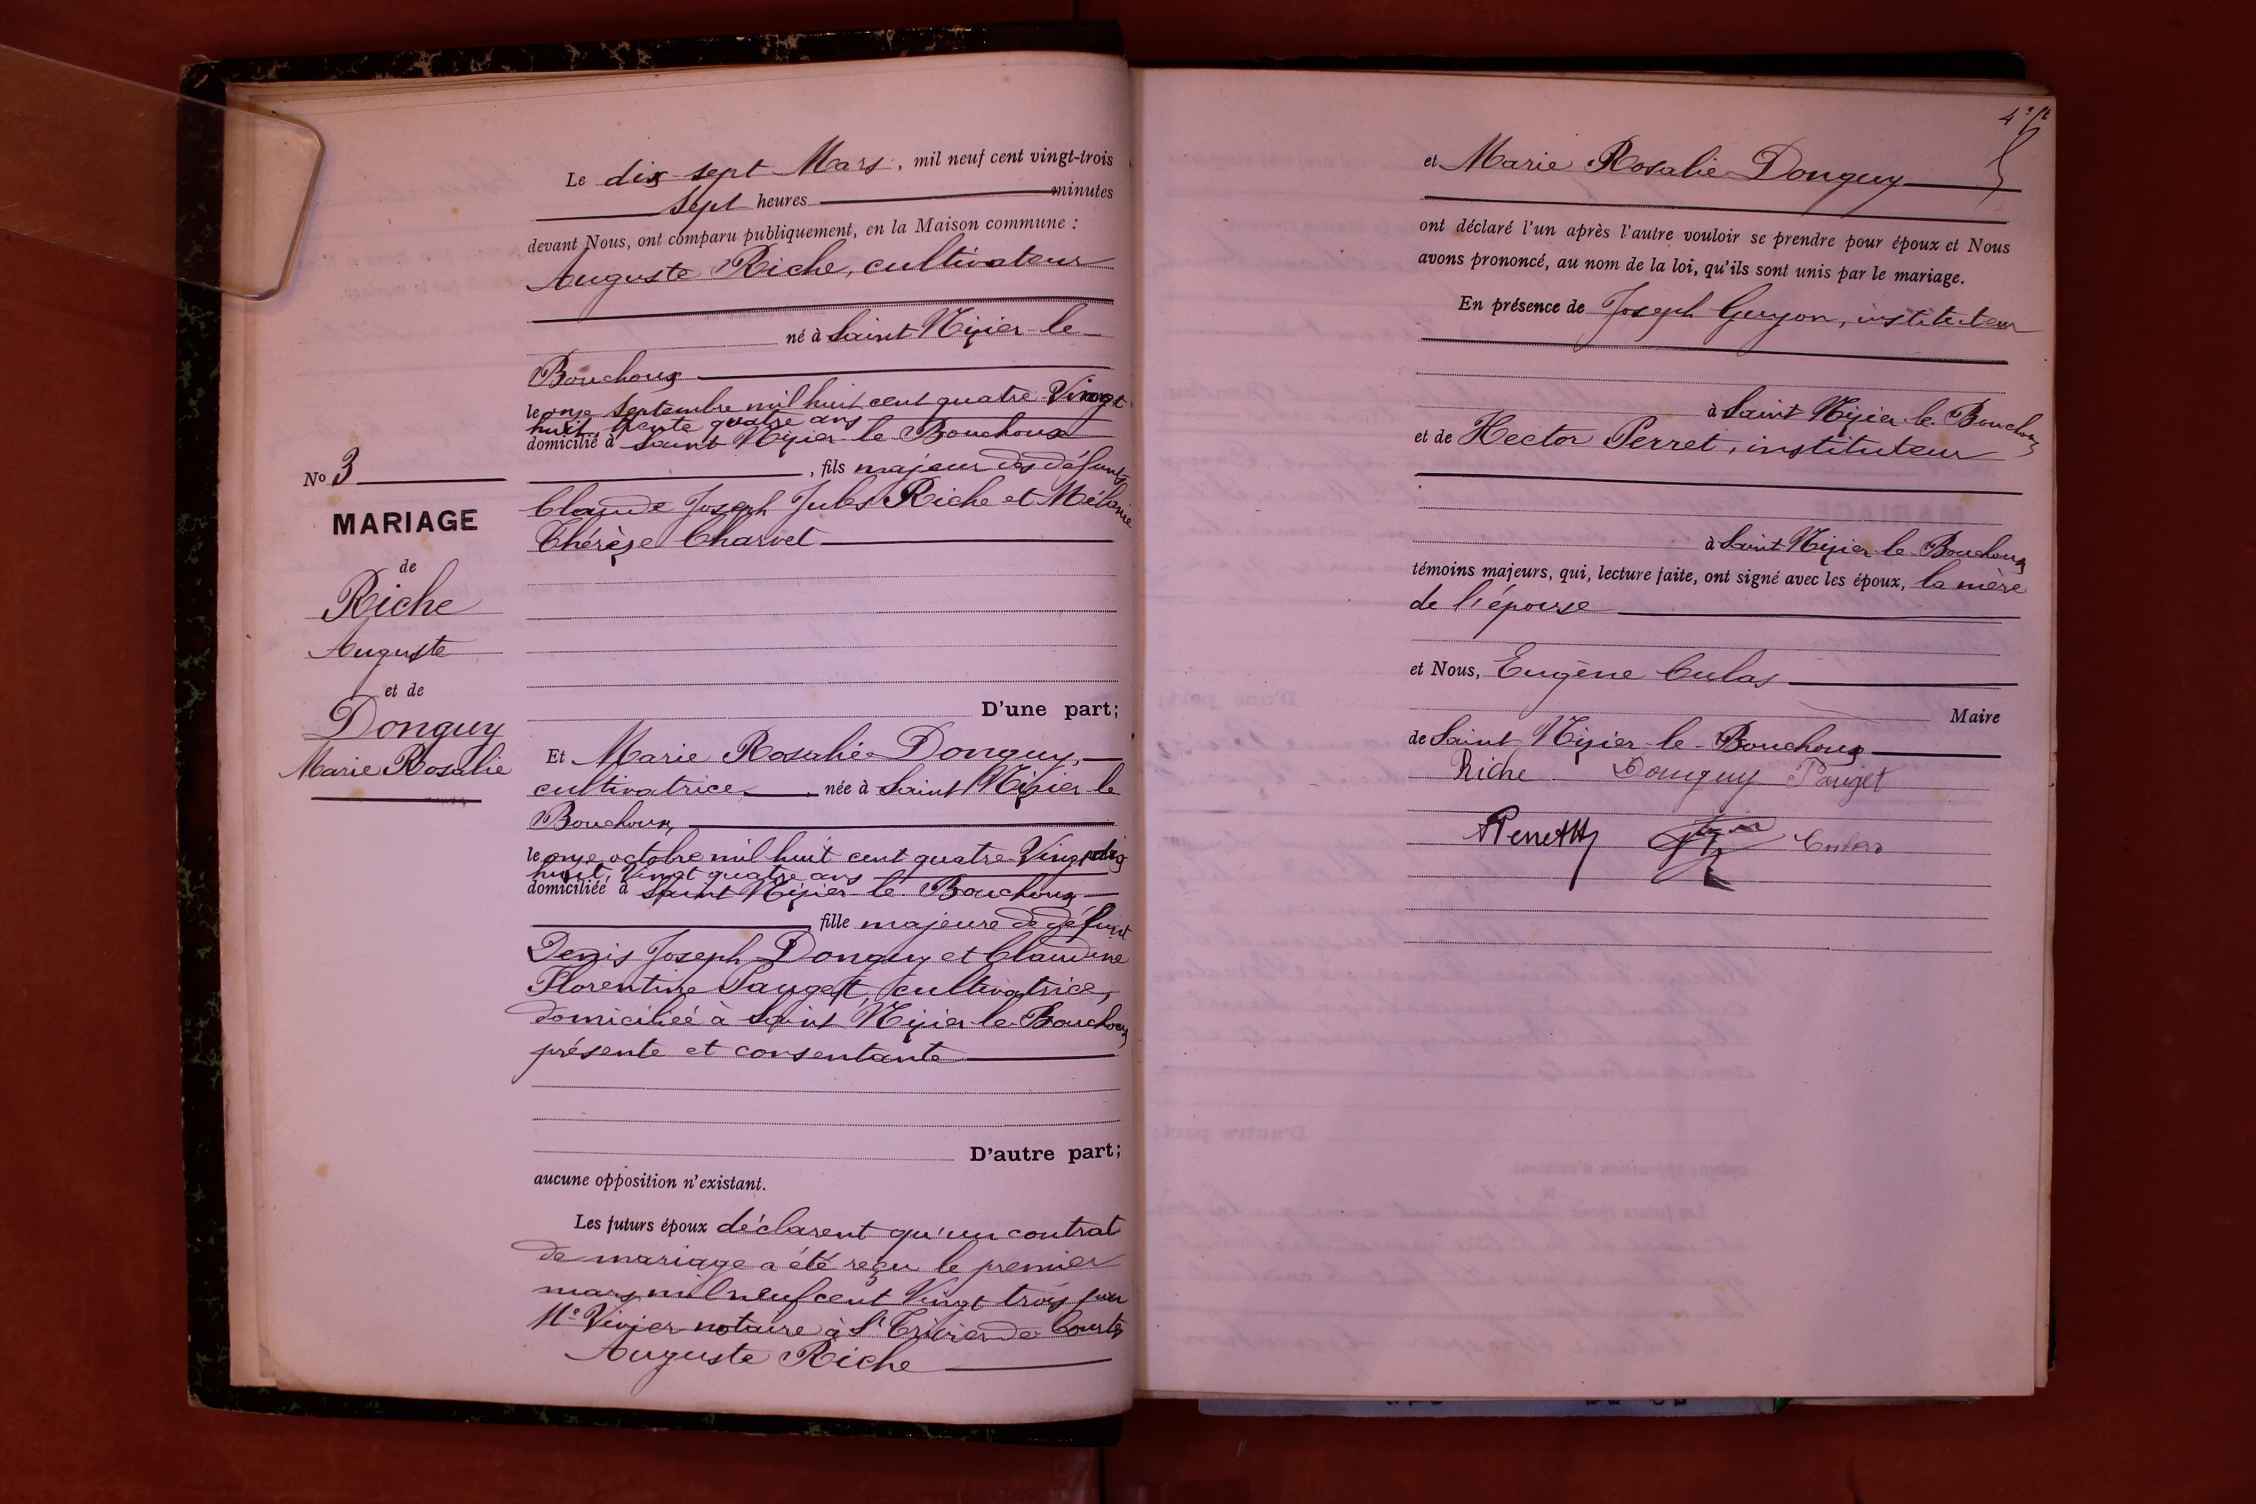 Le dix-sept Mars, mil neuf cent vingt-trois
sept heures minutes
devant Nous, ont comparu publiquement, en la Maison commune :
Auguste Riche, cultivateur
né à Saint Nizier-le-
Bouchoux
le onze Septembre mil huit cent quatre-Vingt
huit, trente quatre ans
domicilié à Saint Nizier-le-Bouchoux
, fils majeur des défunts
Claude Joseph Jules Riche et Mélanie
Thérèse Charvet
D'une part;
No 3
MARIAGE
de
Riche
Auguste
et de
Donguy
Marie Rosalie
Et Marie Rosalie Donguy,
cultivatrice, née à Saint Nizier-le
Bouchoux,
le onze octobre mil huit cent quatre-Vingt dix
huit, Vingt quatre ans
domiciliée à Saint Nizier-le-Bouchoux
, fille majeure de défunt
Denis Joseph Donguy et Claudine
Florentine Pauget, cultivatrice,
domiciliée à Saint Nizier-le-Bouchoux
présente et consentante
D'autre part;
aucune opposition n'existant.
Les futurs époux déclarent qu'un contrat
de mariage a été reçu le premier
mars mil neuf cent Vingt trois par
Me Vivier notaire à St Trivier de Courtes
Auguste Riche
et Marie Rosalie Donguy
ont déclaré l'un après l'autre vouloir se prendre pour époux et Nous
avons prononcé, au nom de la loi, qu'ils sont unis par le mariage.
En présence de Joseph Guyon, instituteur
à Saint Nizier-le-Bouchoux
et de Hector Perret, instituteur
à Saint Nizier-le-Bouchoux
témoins majeurs, qui, lecture faite, ont signé avec les époux, la mère
de l'épouse
et Nous, Eugène Culas
Maire
de Saint Nizier-le-Bouchoux
Riche Donguy Pauget
Culas